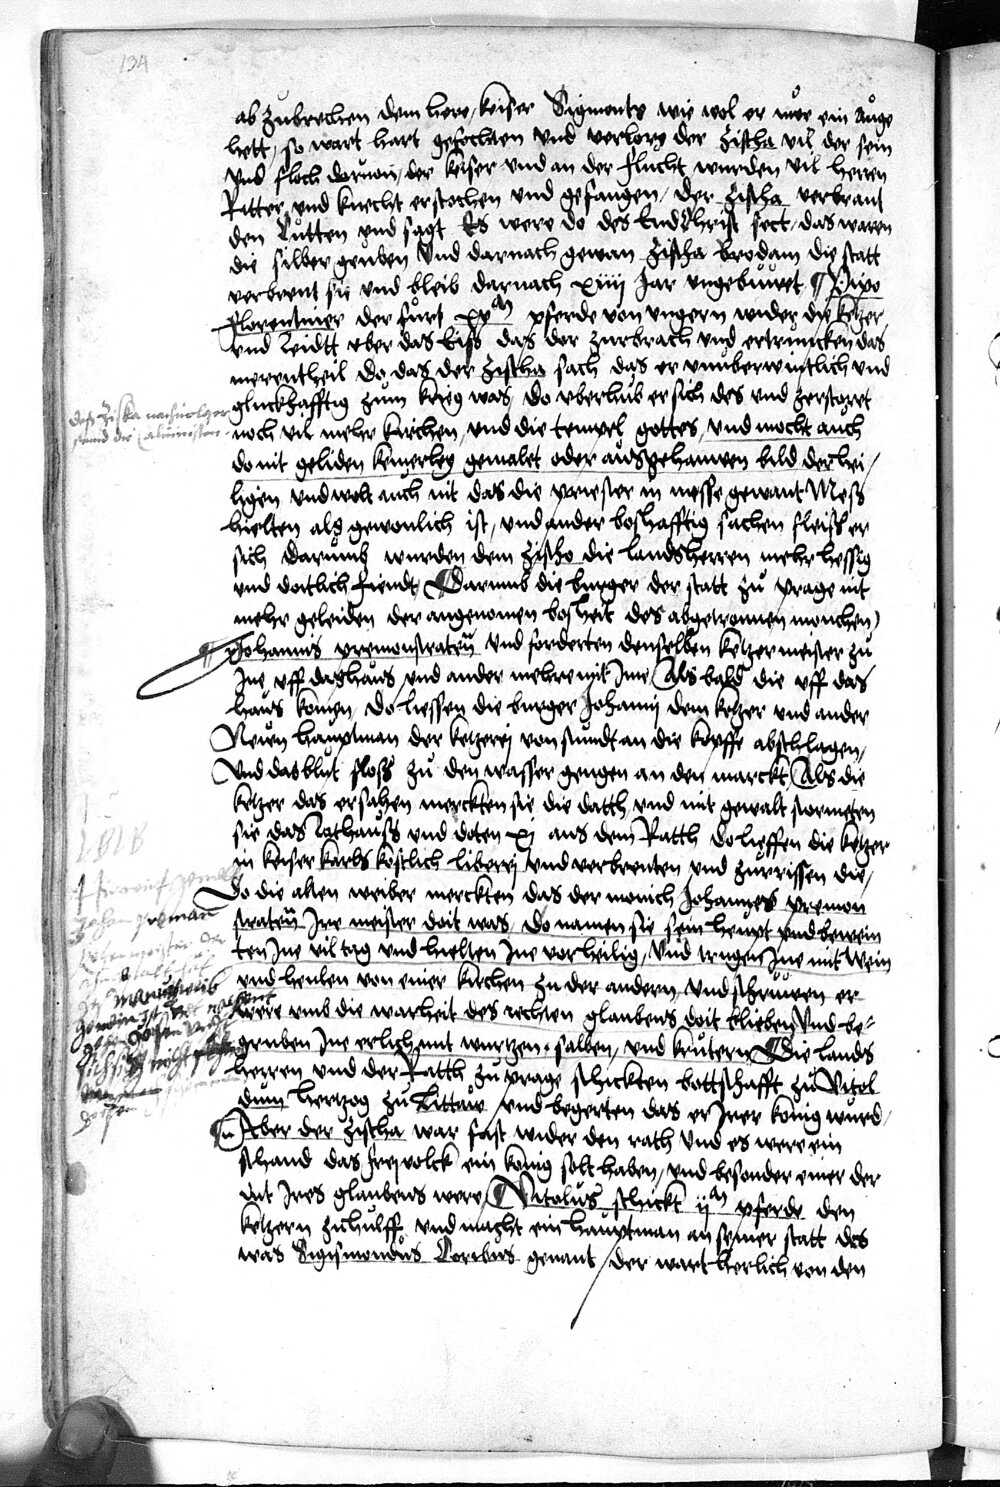 134
ab zubrechen dem here keiser Sigmonts wie wol er nuer ein auge
hett, so wart hart gefochten vnd verlore der Zischa vil der sein
vnd floch daruon, der keiser vnd an der flucht wurden vil herren
Ritter vnd knecht erstochen vnd gefangen, der Zischa verbrant
den Kutten vnd sagt Es were do des EndChrist sect, das waren
die silber gruben Vnd darnach gewan Zischa Brodam die statt
verbrent sie vnd bleib darnach xiiij Jar vngebuwet ¶ Pipo
florentiner der furt xxm pferde von vngern wider die ketzer
vnd Leidtt vber das Eiss das der zurbrach vnd ertrincken das
merentheil Do das der Zischa sach das er vnuberwintlich vnd
gluckhafftig zum krieg was, do vberhub er sich des vnd zerstoret
noch vil mehr kirchen, vnd die tempel gottes, vnd mocht auch
do nit geliden keinerley gemalet oder ausgehauwen bild der hei/
ligen vnd wolt auch nit das die priester in messe gewant Mess
hielten als gewonlich ist, vnd ander boshafftig sachen fleiss er
sich darumb wurden dem Zischo die landsherren mehr hessig
vnd doitlich fiendt Darumb die burger der statt zu prage nit
mehr geleiden der angenomen bosheit des abgetronnen monchen
¶ Johannis premonstraten vnd forderten denselben ketzermeister zu
Ine vff das haus vnd ander mehre mit Ime Als bald die vff das
haus komen, do liessen die burger Johanni dem ketzer vnd ander
Neun hauptman der ketzerej von stundt an die kopffe abschlagen,
Vnd das blut floss zu den wasser gengen an den marckt Als die
ketzer das ersahen merckten sie die datth vnd mit gewalt stormeten
sie das Rathauss vnd doten xj aus dem Ratth do lieffen die ketzer
in keiser karls kostlich liberej vnd verbrenten vnd zurrissen die,
Do die alten weiber merckten das der monich Johannes premon
straten Ire meister doit was, do namen sie sein heupt vnd bewein
ten Ine vil tag vnd hielten Ine vor heilig, Vnd trugen Ine mit wein
vnd heulen von einer kirchen zu der andern, vnd schruwen er
were vmb die warheit des rechten glaubens doit blieben Vnd be=
gruben Ine erlich mit wurtzen, salben, vnd krutern Die lands
herren vnd der Ratth zu prage schickten bottschafft zu Vitol
dum hertzog zu Littaw vnd begerten das er Irer konig wurd,
¶ Aber der Zischa war fast wider den rath Vnd es were ein
schand das frey volck ein konig solt haben, vnd besonder einer der
nit Ires glaubens were, Vitoldus schickt ijm pferde den
ketzern zu hulff vnd macht ein hauptman an seiner statt des
was Sigismondus Coribus genant, der wart herlich von den